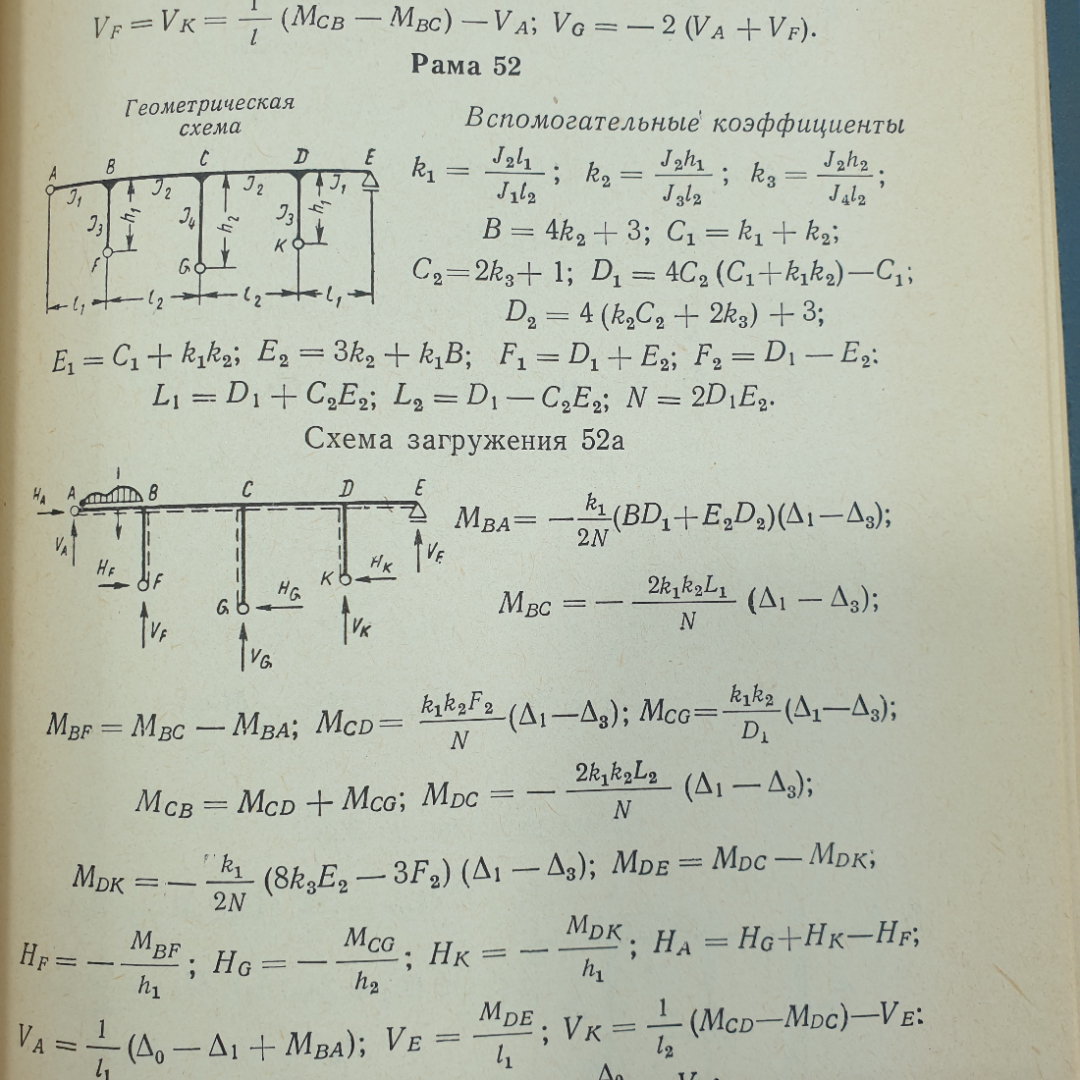 V_F = V_K = 1/l (M_CB — M_BC) — V_A; V_G = — 2 (V_A + V_F).
Рама 52
Геометрическая
схема
Вспомогательные коэффициенты
A B C D E
J₁ J₂ J₂ J₁
J₃ h₁ J₄ h₂ J₃ h₁
F G K
l₁ l₂ l₂ l₁
k₁ = J₂l₁/J₁l₂; k₂ = J₂h₁/J₃l₂; k₃ = J₂h₂/J₄l₂;
B = 4k₂ + 3; C₁ = k₁ + k₂;
C₂ = 2k₃ + 1; D₁ = 4C₂ (C₁ + k₁k₂) — C₁;
D₂ = 4 (k₂C₂ + 2k₃) + 3;
E₁ = C₁ + k₁k₂; E₂ = 3k₂ + k₁B; F₁ = D₁ + E₂; F₂ = D₁ — E₂:
L₁ = D₁ + C₂E₂; L₂ = D₁ — C₂E₂; N = 2D₁E₂.
Схема загружения 52а
H_A A B C D E
V_A V_E
H_F F G H_G K H_K
V_F V_G V_K
M_BA = — k₁/2N (BD₁ + E₂D₂)(Δ₁ — Δ₃);
M_BC = — 2k₁k₂L₁/N (Δ₁ — Δ₃);
M_BF = M_BC — M_BA; M_CD = k₁k₂F₂/N (Δ₁ — Δ₃); M_CG = k₁k₂/D₁ (Δ₁ — Δ₃);
M_CB = M_CD + M_CG; M_DC = — 2k₁k₂L₂/N (Δ₁ — Δ₃);
M_DK = — k₁/2N (8k₃E₂ — 3F₂) (Δ₁ — Δ₃); M_DE = M_DC — M_DK;
H_F = — M_BF/h₁; H_G = — M_CG/h₂; H_K = — M_DK/h₁; H_A = H_G + H_K — H_F;
V_A = 1/l₁ (Δ₀ — Δ₁ + M_BA); V_E = M_DE/l₁; V_K = 1/l₂ (M_CD — M_DC) — V_E: